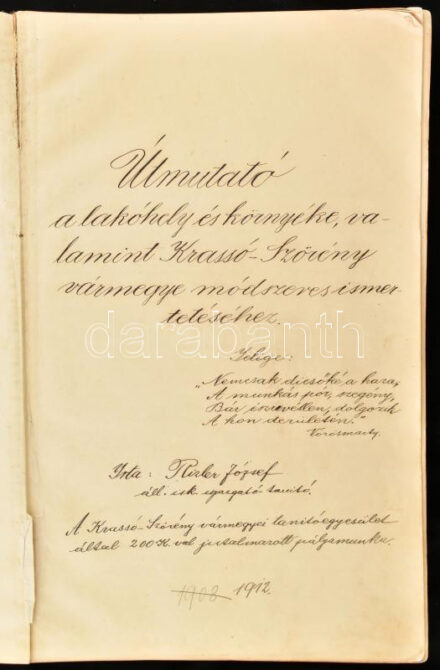 Útmutató
a lakóhely és környéke, va-
lamint Krassó-Szörény
vármegye módszeres ismer-
tetéséhez.
Jelige:
„Nemcsak dicsőké a haza,
A munkás pór, szegény,
Bár észrevétlen, dolgozik
A hon derületén."
Vörösmarty.
Irta: Rixler József
áll. isk. igazgató-tanító.
A Krassó-Szörény vármegyei tanítóegyesület
által 200 K.-val jutalmazott pályamunka.
1908 1912.
darabanth